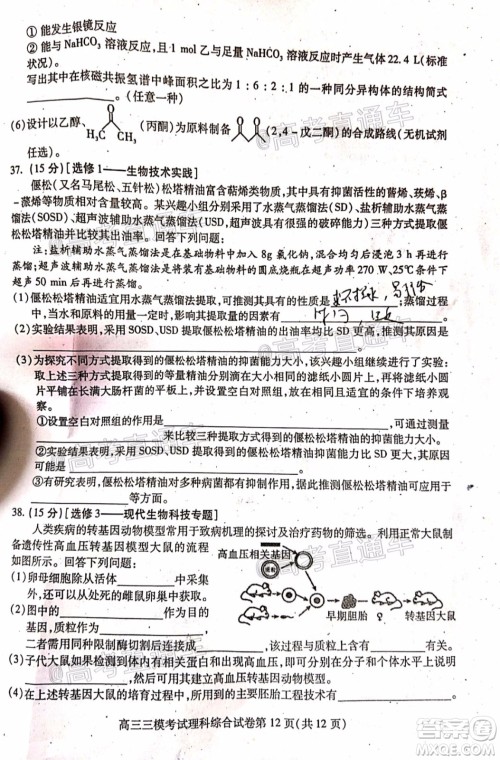 ①能发生银镜反应
②能与NaHCO₃溶液反应,且1mol乙与足量NaHCO₃溶液反应时产生气体22.4L(标准
状况)。
写出其中在核磁共振氢谱中峰面积比为1:6:2:1的一种同分异构体的结构简式
(任意一种)
(6)设计以乙醇、(丙酮)为原料制备(2,4-戊二酮)的合成路线(无机试剂
任选)。
37.(15分)[选修1——生物技术实践]
偃松(又名马尾松、五针松)松塔精油富含萜烯类物质,具有抑菌活性的莰烯、β-蒎烯等物质
某兴趣小组分别采用了水蒸气蒸馏法(SD)、盐析辅助水蒸气
蒸馏法(SOSD)、超声波辅助水蒸气蒸馏法(USD,超声波具有很强的破碎能力)三种方式提取偃
松松塔精油并比较其出油率。回答下列问题:
注:盐析辅助水蒸气蒸馏法是在基础物料中加入8g氯化钠,混合均匀后浸润3h再进行
蒸馏;超声波辅助水蒸气蒸馏法是将装有基础物料的圆底烧瓶在超声波功率270W、25℃条件下
超声50min后直接进行蒸馏。
(1)偃松松塔精油适宜用水蒸气蒸馏法提取,可推测其具有的性质是;蒸馏过程
中,当水和原料的量一定时,影响精油提取量的主要因素有
(2)实验结果表明,采用SOSD、USD提取精油的出油率均比SD更高,推测其原因

(3)为探究不同方式提取得到的偃松松塔精油的抑菌能力大小,该兴趣小组继续进行了下列实
验:将不同方式提取得到的偃松松塔精油滴加到大小相同的无菌滤纸小圆片上,再将小圆
片转移到长有大肠杆菌的平板上,并设置空白对照组,将其置于相同且适宜的条件下培养
观察。
①设置空白对照组的作用为
②可以通过比较来比较不同方式提取得到的偃松松塔精油的抑菌能力。
实验结果表明,采用SOSD、USD提取得到的偃松松塔精油的抑菌能力比SD更强,推测
其原因是
③有研究表明,偃松松塔精油具有一定的抗氧化能力,据此推测偃松松塔精油可应用于
等领域。
38.(15分)[选修3——现代生物科技专题]
人类疾病的转基因动物模型常用于致病机理的探讨及治疗药物的筛选。利用正常大鼠制
备遗传性高血压转基因模型大鼠的流程
如图所示。回答下列问题:
高血压相关基因
早期胚胎
转基因大鼠
(1)卵母细胞除从活体中采集外,
还可以从处死的雌鼠卵巢中获取。
(2)图中的作为目的基因,
可用同种限制酶切割后连接成,其应含有
等。
(3)子代大鼠如果和出现高血压,即可分别在水平说明
遗传性高血压转基因模型大鼠已成功建立。
(4)在上述转基因大鼠的培育过程中,所用到的主要胚胎工程技术是
高三三模考试理科综合试卷第12页(共12页)